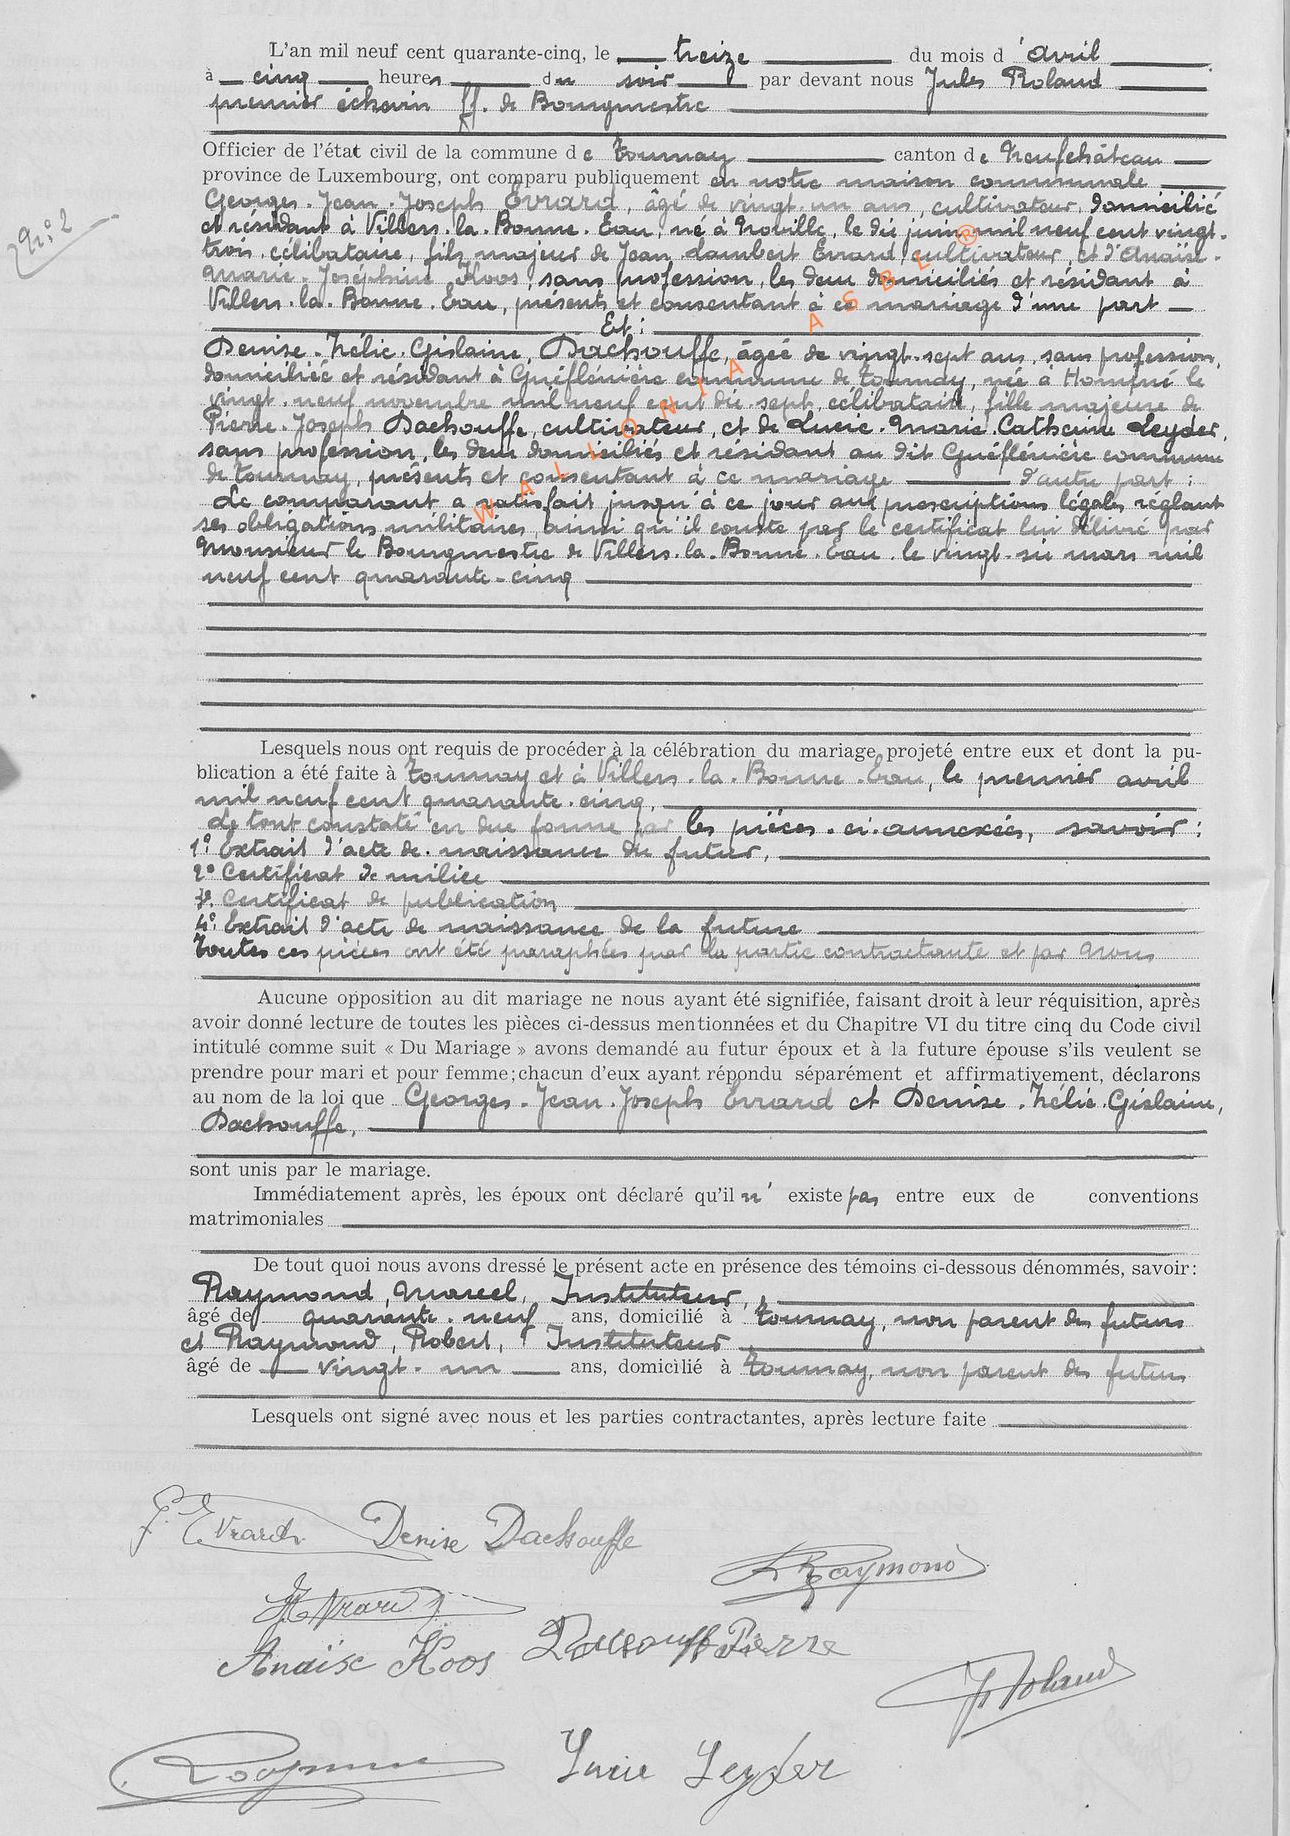 L'an mil neuf cent quarante-cinq, le treize du mois d'avril
à cinq heures du soir par devant nous Jules Roland
premier échevin ff. de Bourgmestre
Officier de l'état civil de la commune de Tournay canton de Neufchâteau
province de Luxembourg, ont comparu publiquement en notre maison communale
N° 2
Georges-Jean-Joseph Evrard, âgé de vingt-un ans, cultivateur, domicilié
et résidant à Villers-la-Bonne-Eau, né à Noville, le dix juin mil neuf cent vingt-
trois, célibataire, fils majeur de Jean Lambert Evrard cultivateur, et d'Anaïse-
Marie-Joséphine Koos, sans profession, les deux domiciliés et résidant à
Villers-la-Bonne-Eau, présents et consentant à ce mariage d'une part
Et:
Denise-Zélie-Gislaine, Dachouffe, âgée de vingt-sept ans, sans profession,
domiciliée et résidant à Guéflénière commune de Tournay, née à Hompré le
vingt-neuf novembre mil neuf cent dix-sept, célibataire, fille majeure de
Pierre-Joseph Dachouffe, cultivateur, et de Lucie-Marie-Catherine Leyder,
sans profession, les deux domiciliés et résidant au dit Guéflénière commune
de Tournay, présents et consentant à ce mariage d'autre part:
Le comparant a satisfait jusqu'à ce jour aux prescriptions légales réglant
ses obligations militaires ainsi qu'il conste par le certificat lui délivré par
Monsieur le Bourgmestre de Villers-la-Bonne-Eau le vingt-six mars mil
neuf cent quarante-cinq
WALLONIA ASBL ®
Lesquels nous ont requis de procéder à la célébration du mariage projeté entre eux et dont la pu-
blication a été faite à Tournay et à Villers-la-Bonne-Eau, le premier avril
mil neuf cent quarante-cinq,
Le tout constaté en due forme par les pièces-ci-annexées, savoir:
1° Extrait d'acte de naissance du futur,
2° Certificat de milice
3° Certificat de publication
4° Extrait d'acte de naissance de la future
Toutes ces pièces ont été paraphées par la partie contractante et par Nous
Aucune opposition au dit mariage ne nous ayant été signifiée, faisant droit à leur réquisition, après
avoir donné lecture de toutes les pièces ci-dessus mentionnées et du Chapitre VI du titre cinq du Code civil
intitulé comme suit « Du Mariage » avons demandé au futur époux et à la future épouse s'ils veulent se
prendre pour mari et pour femme; chacun d'eux ayant répondu séparément et affirmativement, déclarons
au nom de la loi que Georges-Jean-Joseph Evrard et Denise-Zélie-Gislaine,
Dachouffe,
sont unis par le mariage.
Immédiatement après, les époux ont déclaré qu'il n'existe pas entre eux de conventions
matrimoniales
De tout quoi nous avons dressé le présent acte en présence des témoins ci-dessous dénommés, savoir:
Raymond, Marcel, Instituteur,
âgé de quarante-neuf ans, domicilié à Tournay, non parent des futurs
et Raymond, Robert, Instituteur
âgé de vingt-un ans, domicilié à Tournay, non parent des futurs
Lesquels ont signé avec nous et les parties contractantes, après lecture faite
G. Evrard Denise Dachouffe
R Raymond
JL Evrard
Anaïse Koos Dachouffe Pierre
J Roland
Raymond Lucie Leyder